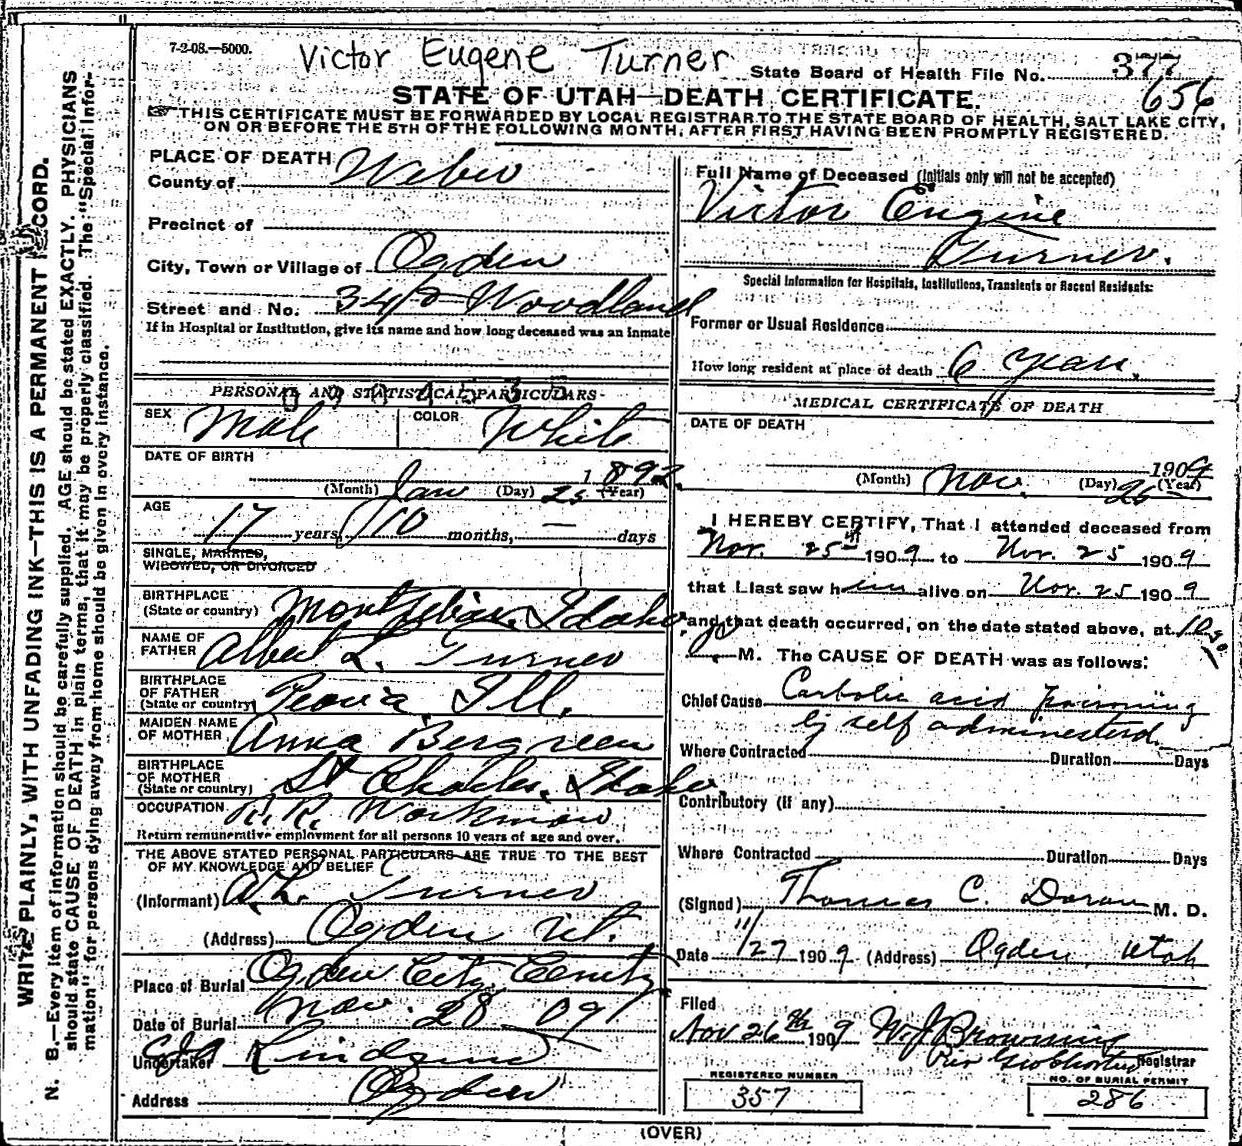 7-2-08.—5000.
Victor Eugene Turner
State Board of Health File No. 377
656
STATE OF UTAH—DEATH CERTIFICATE.
THIS CERTIFICATE MUST BE FORWARDED BY LOCAL REGISTRAR TO THE STATE BOARD OF HEALTH, SALT LAKE CITY,
ON OR BEFORE THE 5TH OF THE FOLLOWING MONTH, AFTER FIRST HAVING BEEN PROMPTLY REGISTERED.
WRITE PLAINLY, WITH UNFADING INK—THIS IS A PERMANENT RECORD.
N. B.—Every item of information should be carefully supplied. AGE should be stated EXACTLY. PHYSICIANS
should state CAUSE OF DEATH in plain terms, that it may be properly classified. The "Special Infor-
mation" for persons dying away from home should be given in every instance.
PLACE OF DEATH
County of Weber
Precinct of
City, Town or Village of Ogden
Street and No. Woodland
If in Hospital or Institution, give its name and how long deceased was an inmate
PERSONAL AND STATISTICAL PARTICULARS
SEX Male COLOR White
DATE OF BIRTH
1892
(Month) Jan (Day) 25 (Year)
AGE
17 years, 10 months, — days
SINGLE, MARRIED,
WIDOWED, OR DIVORCED
BIRTHPLACE
(State or country) Montpelier, Idaho
NAME OF
FATHER Albert L. Turner
BIRTHPLACE
OF FATHER
(State or country) Peoria Ill.
MAIDEN NAME
OF MOTHER Anna Bergreen
BIRTHPLACE
OF MOTHER
(State or country) St Charles, Idaho
OCCUPATION R.R. Workman
Return remunerative employment for all persons 10 years of age and over.
THE ABOVE STATED PERSONAL PARTICULARS ARE TRUE TO THE BEST
OF MY KNOWLEDGE AND BELIEF
(Informant) A. L. Turner
(Address) Ogden Ut.
Place of Burial Ogden City Cemty.
Date of Burial Nov. 28 09
Undertaker Lindquist
Address Ogden
Full Name of Deceased (Initials only will not be accepted)
Victor Eugine
Turner.
Special Information for Hospitals, Institutions, Transients or Recent Residents:
Former or Usual Residence
How long resident at place of death 6 years.
MEDICAL CERTIFICATE OF DEATH
DATE OF DEATH
1909
(Month) Nov. (Day) 25 (Year)
I HEREBY CERTIFY, That I attended deceased from
Nov. 25th 1909 to Nov. 25 1909
that I last saw him alive on Nov. 25 1909
and that death occurred, on the date stated above, at 10 30
M. The CAUSE OF DEATH was as follows:
Chief Cause Carbolic acid poisoning
by self administerd
Where Contracted Duration Days
Contributory (if any)
Where Contracted Duration Days
(Signed) Thomas C. Doran M. D.
Date 11/27 1909 (Address) Ogden, Utah
Filed
Nov 26th 1909 W J Browning
Registrar
REGISTERED NUMBER
357
NO. OF BURIAL PERMIT
286
(OVER)